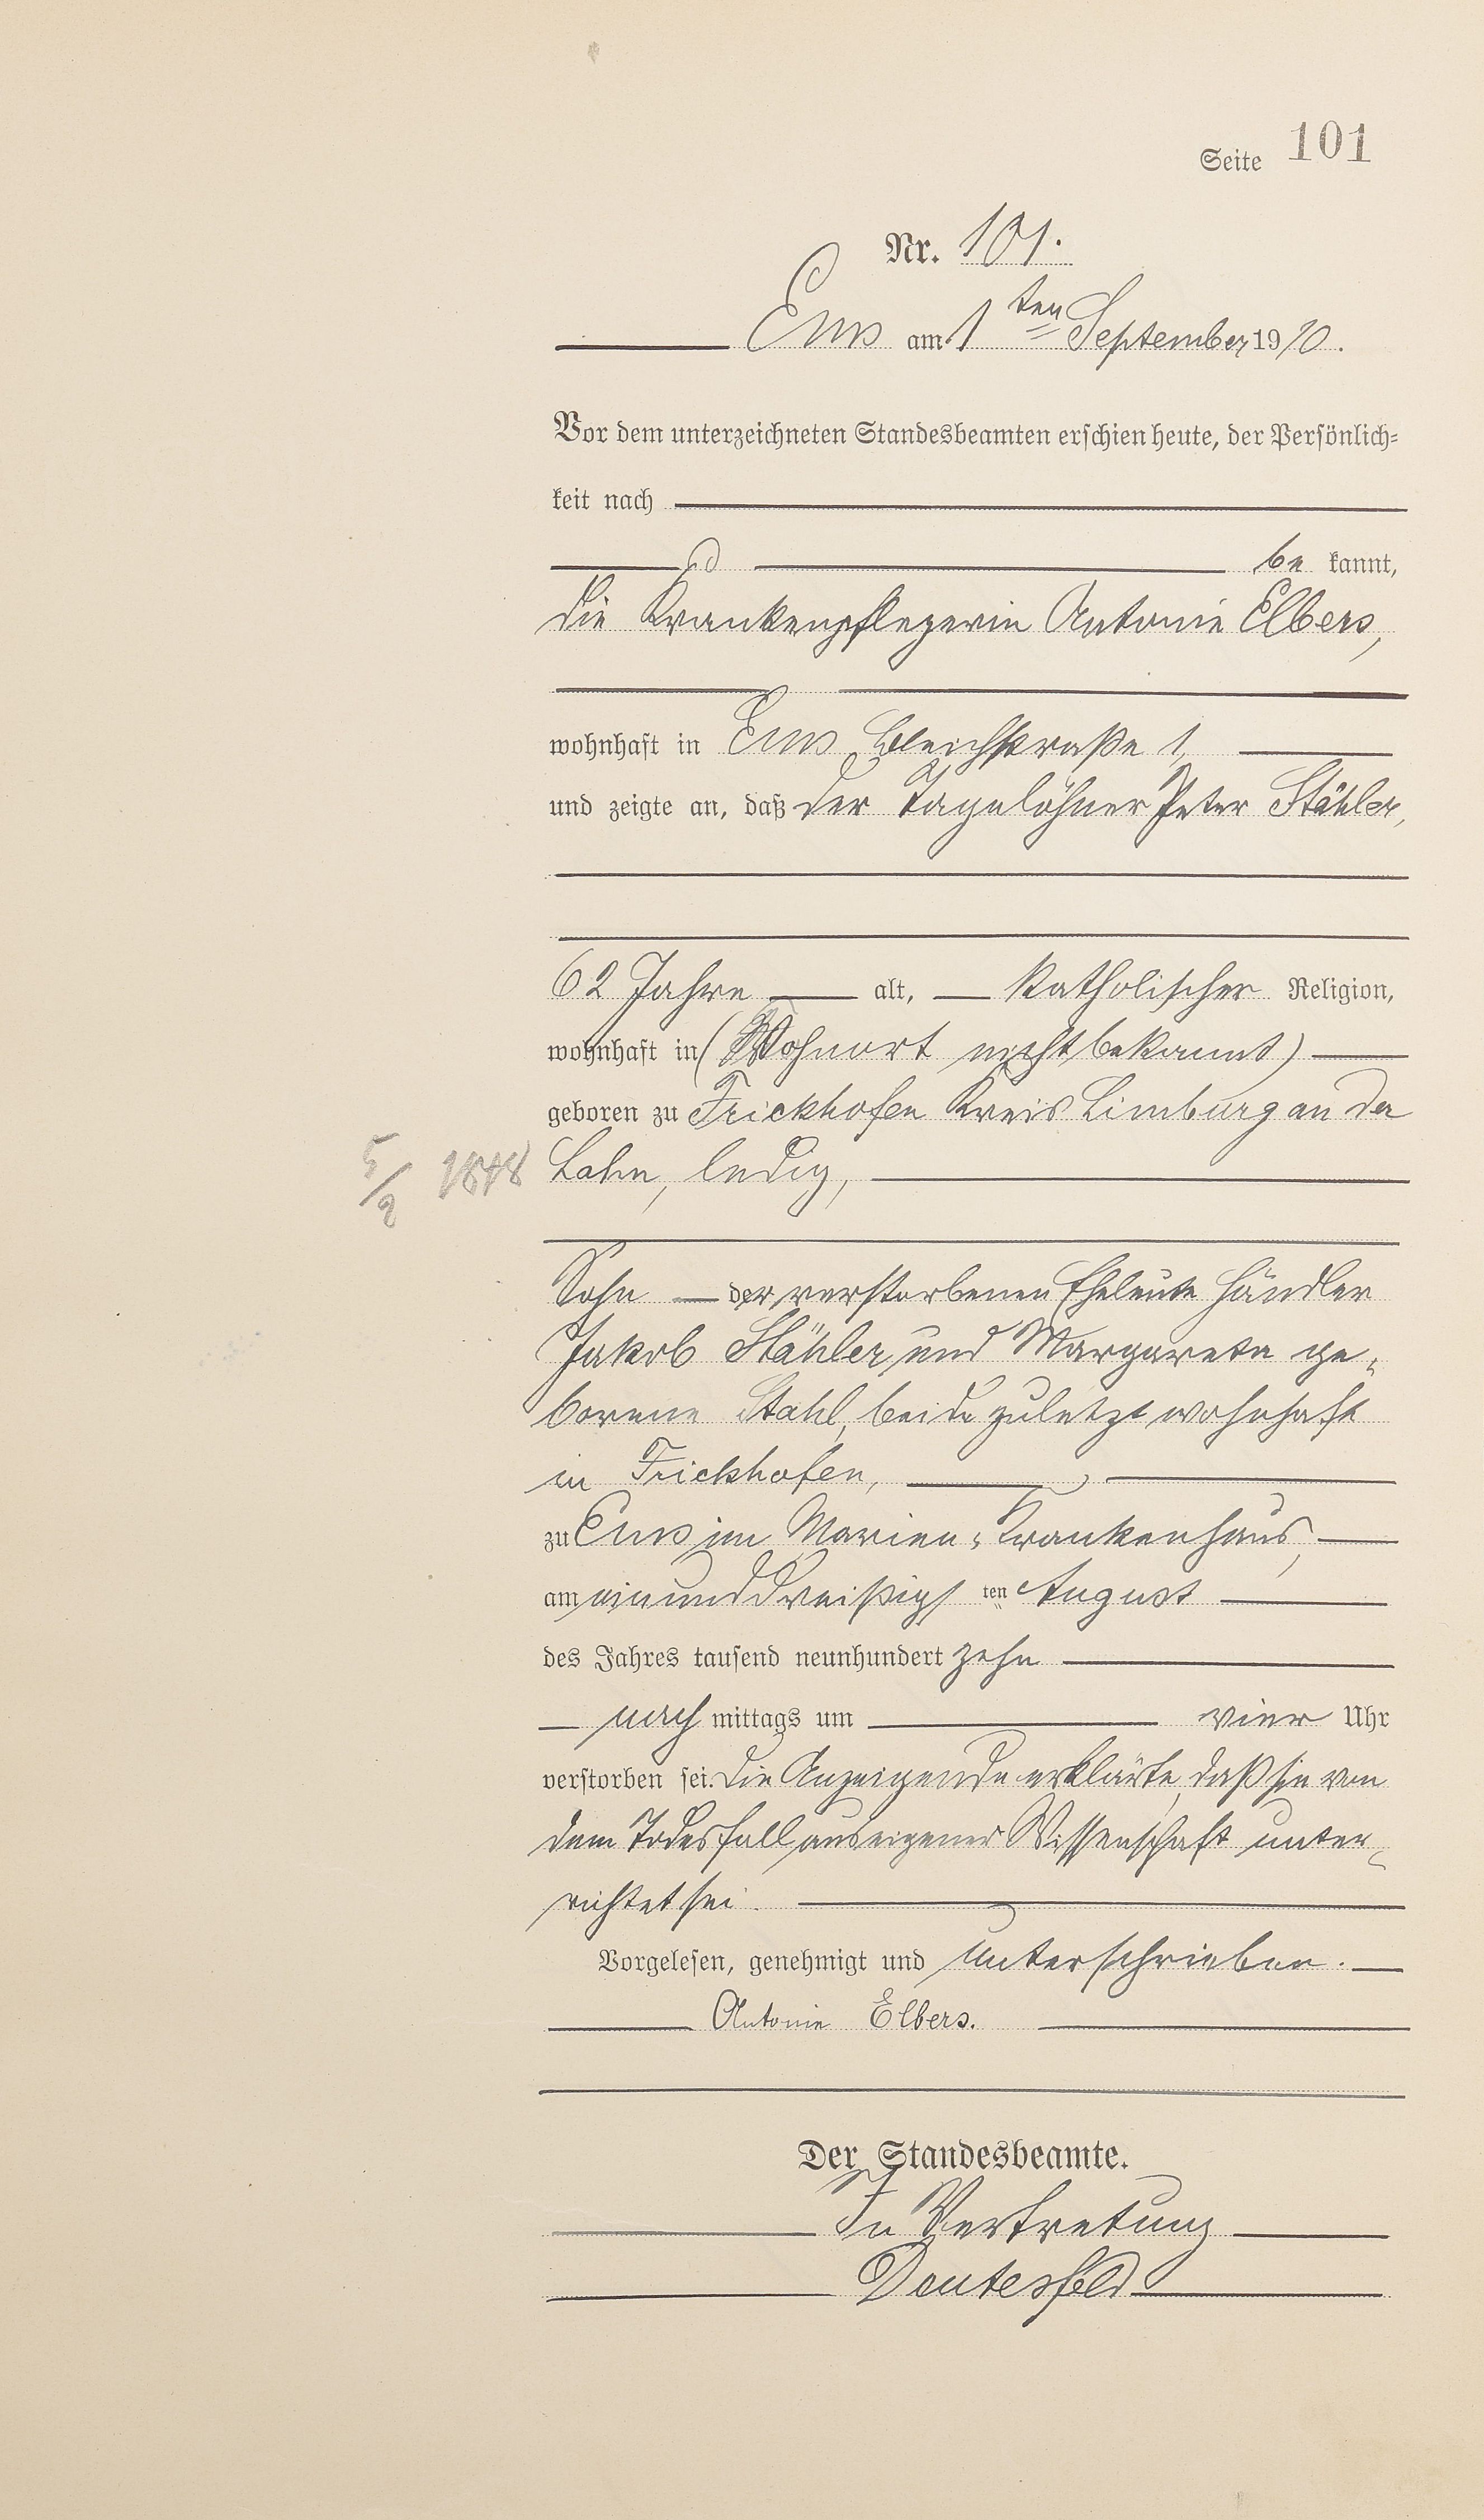 Seite 101
Nr. 101.
Ems am 1ten September 1910.
Vor dem unterzeichneten Standesbeamten erschien heute, der Persönlich=
keit nach
be kannt,
die Krankenpflegerin Antonie Elbers,
wohnhaft in Ems, Bleichstraße 1,
und zeigte an, daß der Tagelöhner Peter Stähler,
62 Jahre alt, katholischer Religion,
wohnhaft in (Wohnort nicht bekannt)
geboren zu Frickhofen Kreis Limburg an der
5/2 1848 Lahn, ledig,
Sohn der verstorbenen Eheleute Händler
Jakob Stähler und Margareta ge-
borene Stahl, beide zuletzt wohnhaft
in Frickhofen,
zu Ems im Marien-Krankenhaus,
am einunddreißigsten August
des Jahres tausend neunhundert zehn
nach mittags um vier Uhr
verstorben sei. Die Anzeigende erklärte, daß sie von
dem Todesfall aus eigener Wissenschaft unter-
richtet sei.
Vorgelesen, genehmigt und unterschrieben.
Antonie Elbers.
Der Standesbeamte.
In Vertretung